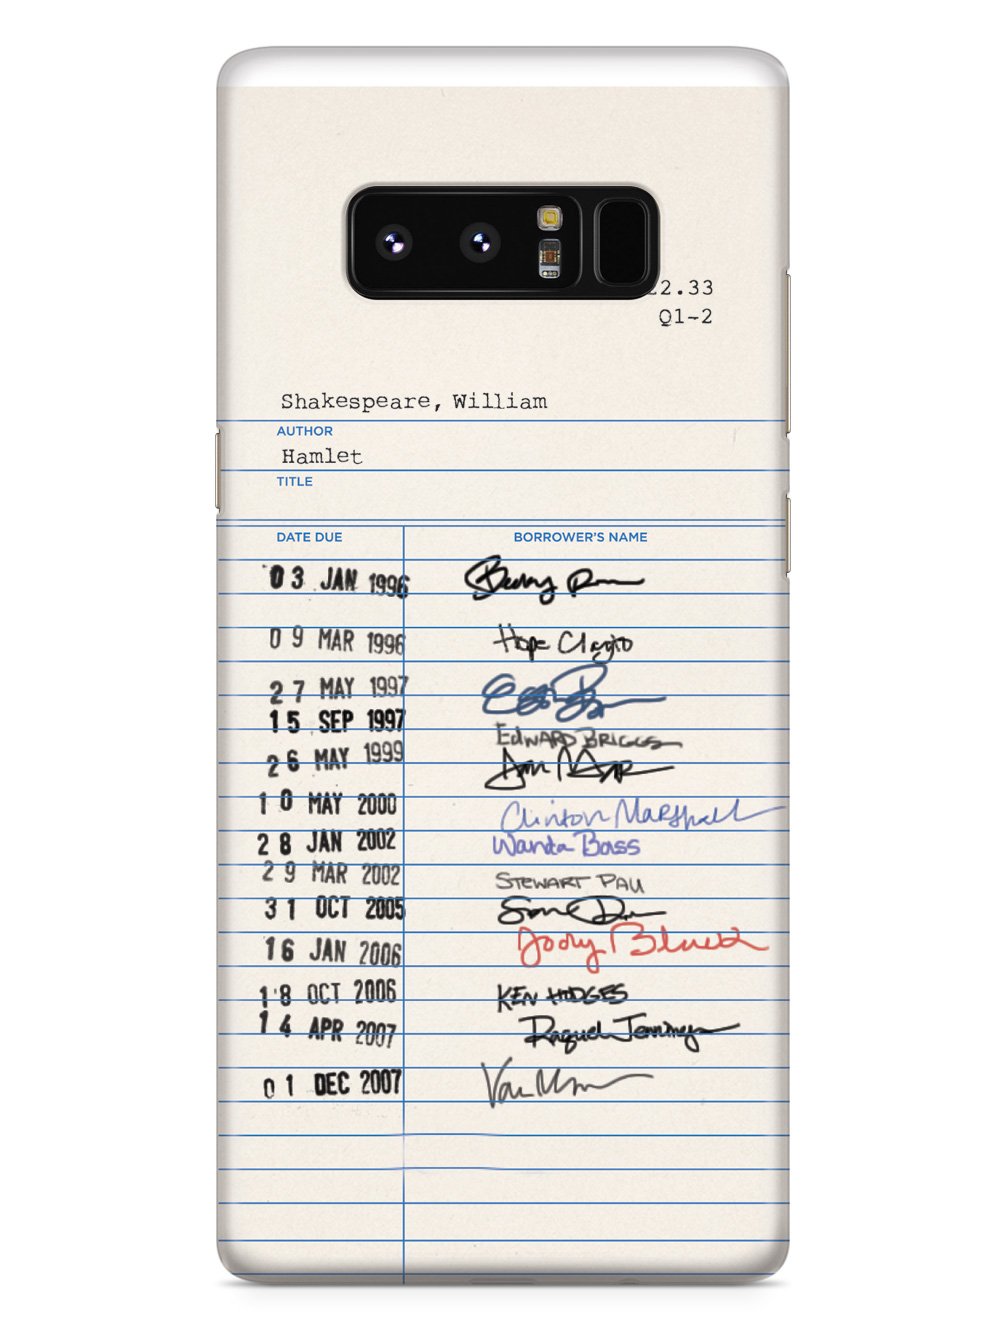 2.33
Q1-2
Shakespeare, William
AUTHOR
Hamlet
TITLE
DATE DUE BORROWER'S NAME
03 JAN 1996
09 MAR 1996 Hope
27 MAY 1997
15 SEP 1997 EDWARD BRIGGS
26 MAY 1999
10 MAY 2000 Clinton Marshall
28 JAN 2002 Wanda Bass
29 MAR 2002 STEWART PAU
31 OCT 2005
16 JAN 2006 Jody Black
18 OCT 2006 KEN HODGES
14 APR 2007 Raquel Jennings
01 DEC 2007 Van